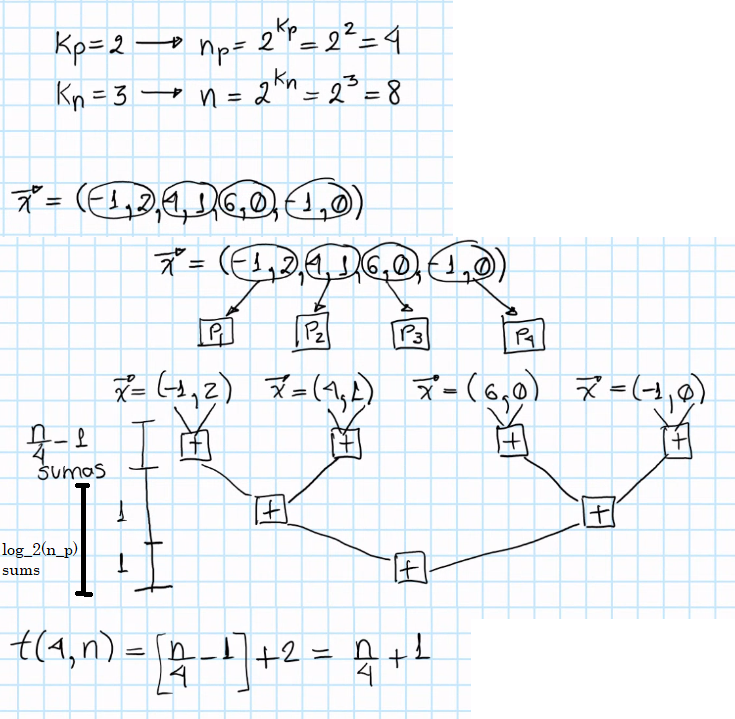 Kp = 2 → np = 2^Kp = 2^2 = 4
Kn = 3 → n = 2^Kn = 2^3 = 8
x⃗ = (-1,2,4,1,6,0,-1,0)
x⃗ = (-1,2,4,1,6,0,-1,0)
P1 P2 P3 P4
x⃗ = (-1,2) x⃗ = (4,1) x⃗ = (6,0) x⃗ = (-1,0)
n/4 - 1 + + + +
sumas
1 + +
log_2(n_p)
sums 1 +
t(4,n) = [n/4 - 1] + 2 = n/4 + 1